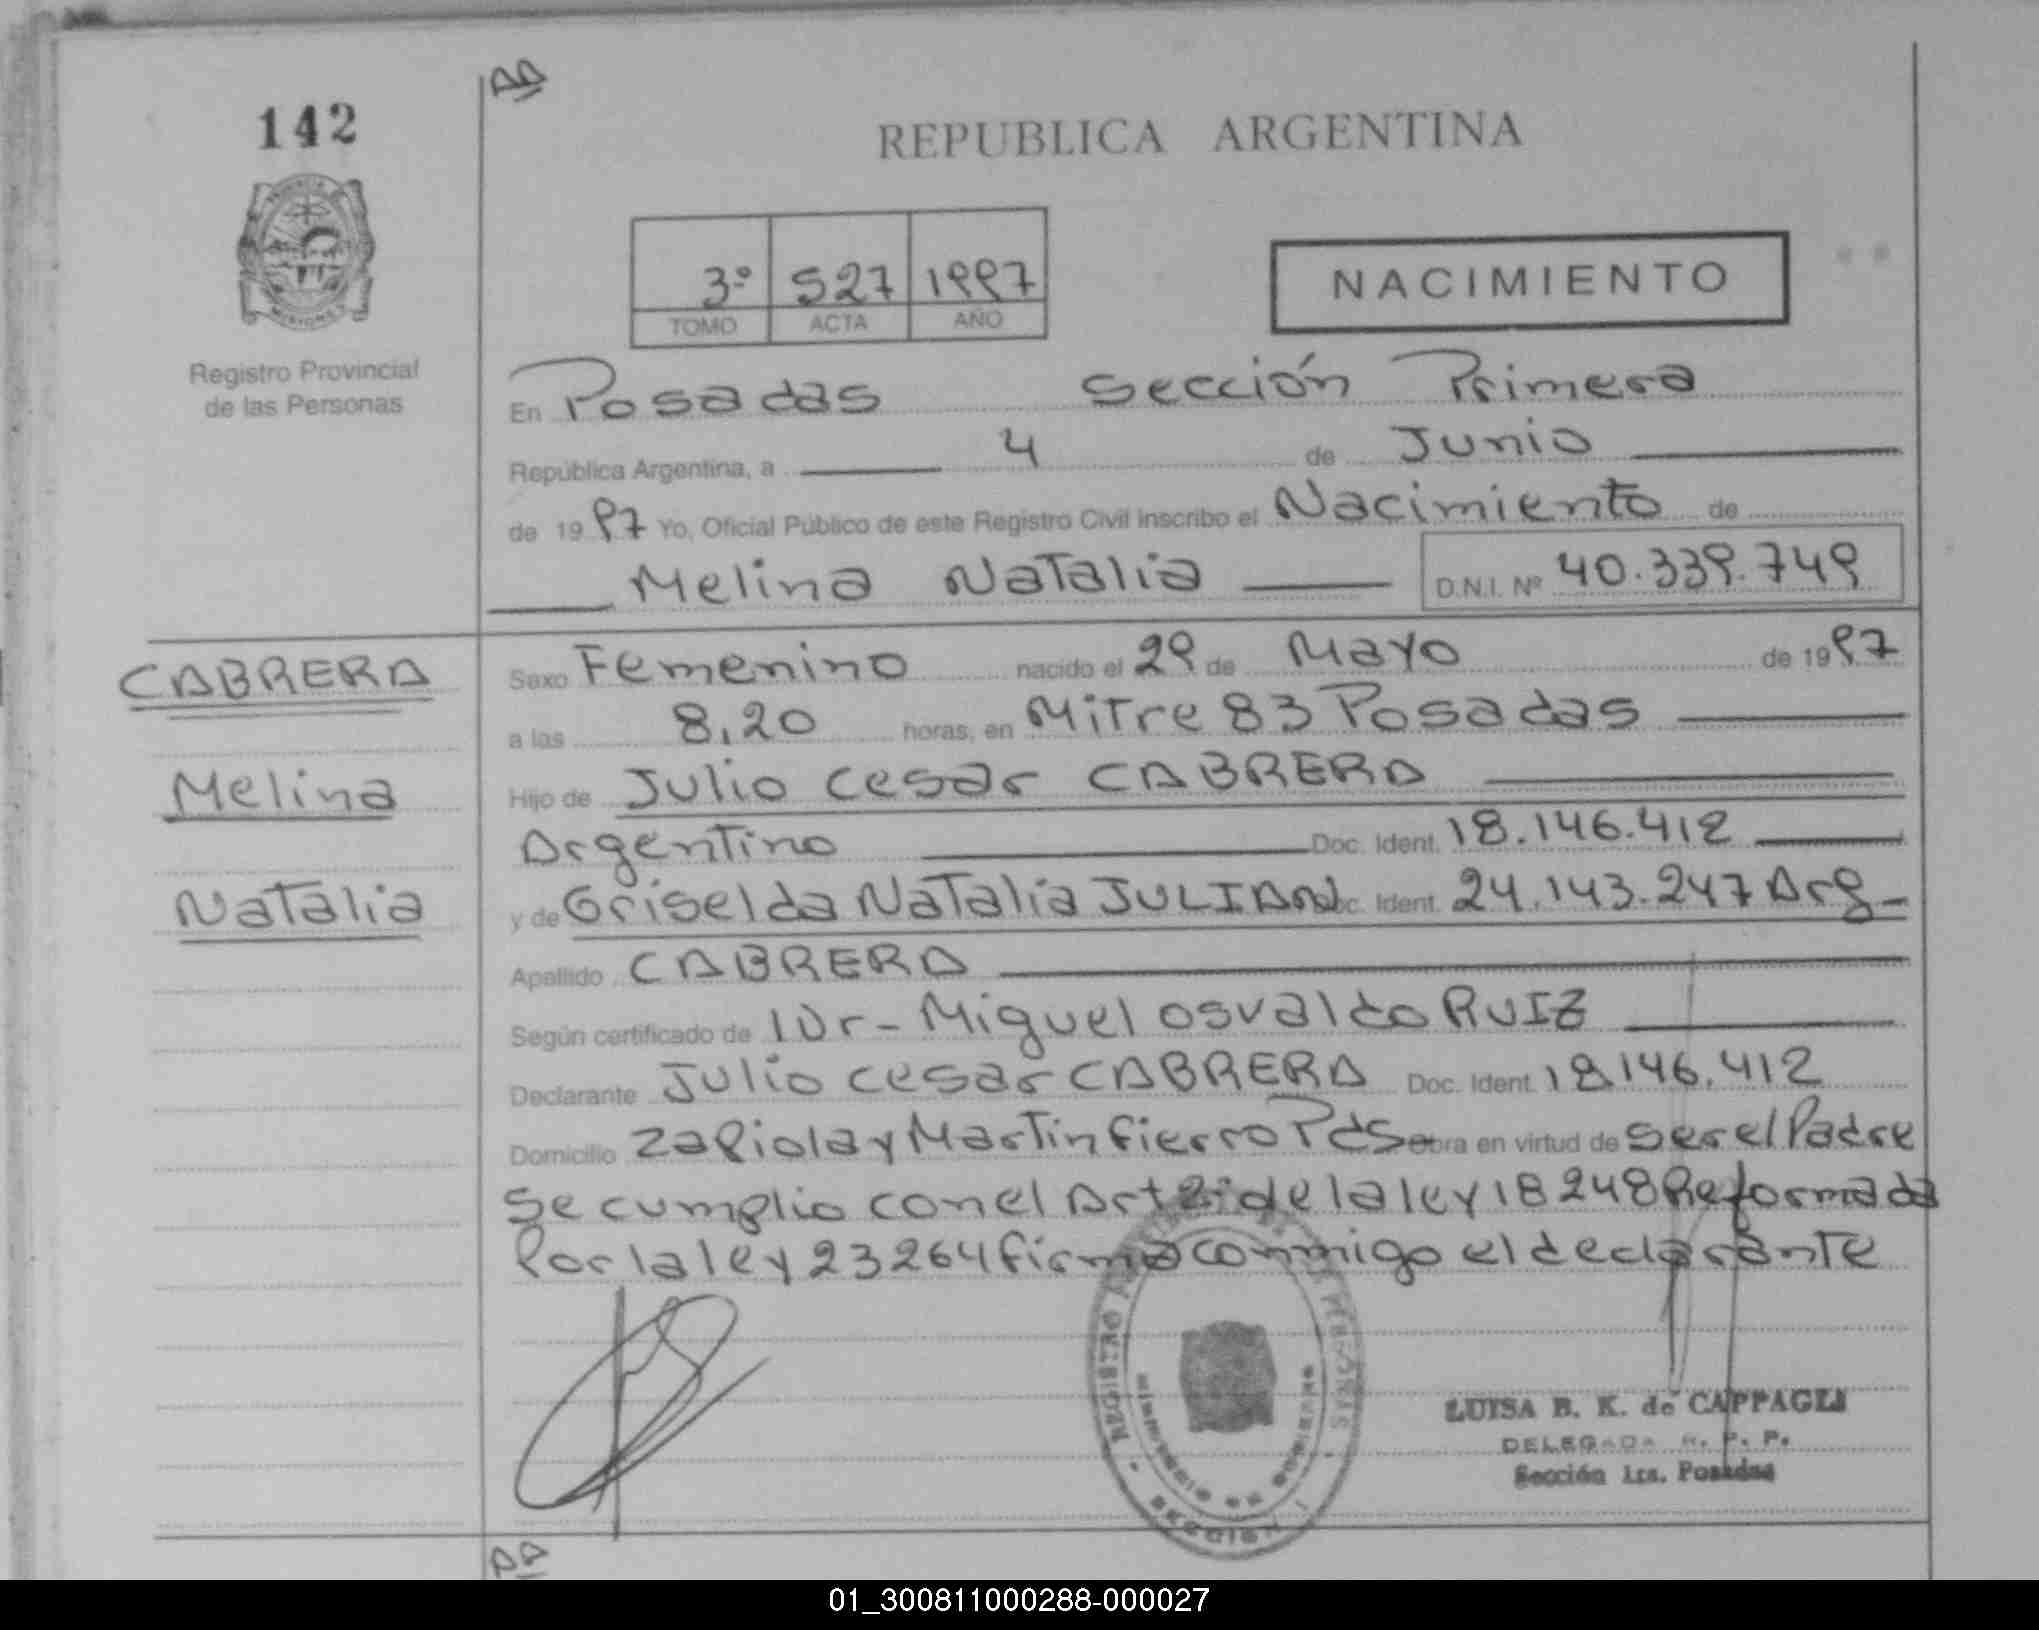 142
REPUBLICA ARGENTINA
3º 527 1997
TOMO ACTA AÑO
NACIMIENTO
Registro Provincial
de las Personas
En Posadas Sección Primera
República Argentina, a 4 de Junio
de 1997 Yo, Oficial Público de este Registro Civil inscribo el Nacimiento de
Melina Natalia D.N.I. Nº 40.339.749
CABRERA
Melina
Natalia
Sexo Femenino nacido el 29 de Mayo de 1997
a las 8,20 horas, en Mitre 83 Posadas
Hijo de Julio Cesar CABRERA
Argentino Doc. Ident. 18.146.412
y de Griselda Natalia JULIAN Doc. Ident. 24.143.247 Arg-
Apellido CABRERA
Según certificado de Dr- Miguel Osvaldo RUIZ
Declarante Julio Cesar CABRERA Doc. Ident. 18.146.412
Domicilio Zapiola y Martin Fierro Pds obra en virtud de ser el Padre
Se cumplio con el Art 2 de la ley 18248 Reformada
Por la ley 23264 firma conmigo el declarante
REGISTRO DE LAS PERSONAS
MISIONES
SECCION
LUISA B. K. de CAPPAGLI
DELEGADA R. P. P.
Sección 1ra. Posadas
01_300811000288-000027